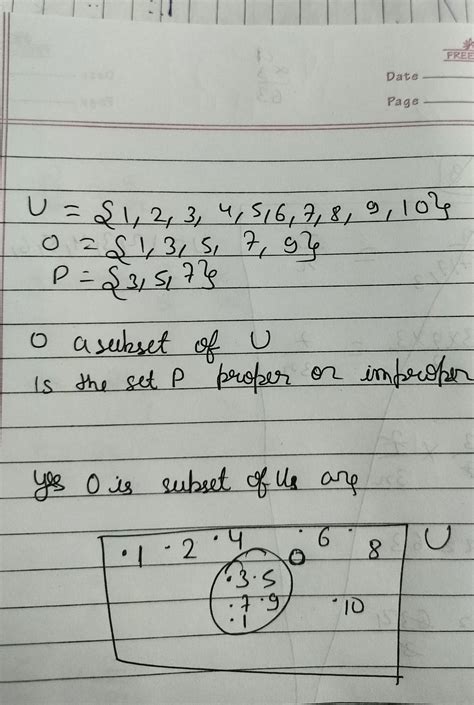 FREE
Date
Page
U = {1, 2, 3, 4, 5, 6, 7, 8, 9, 10}
O = {1, 3, 5, 7, 9}
P = {3, 5, 7}
O a subset of U
Is the set P proper or improper
yes O is subset of Us are
.1 .2 .4 .6 8 U
O
.3 .5
.7 .9 .10
.1